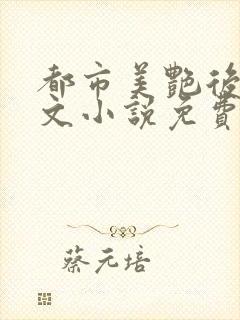 都市美艷後
文小說免費
蔡元培